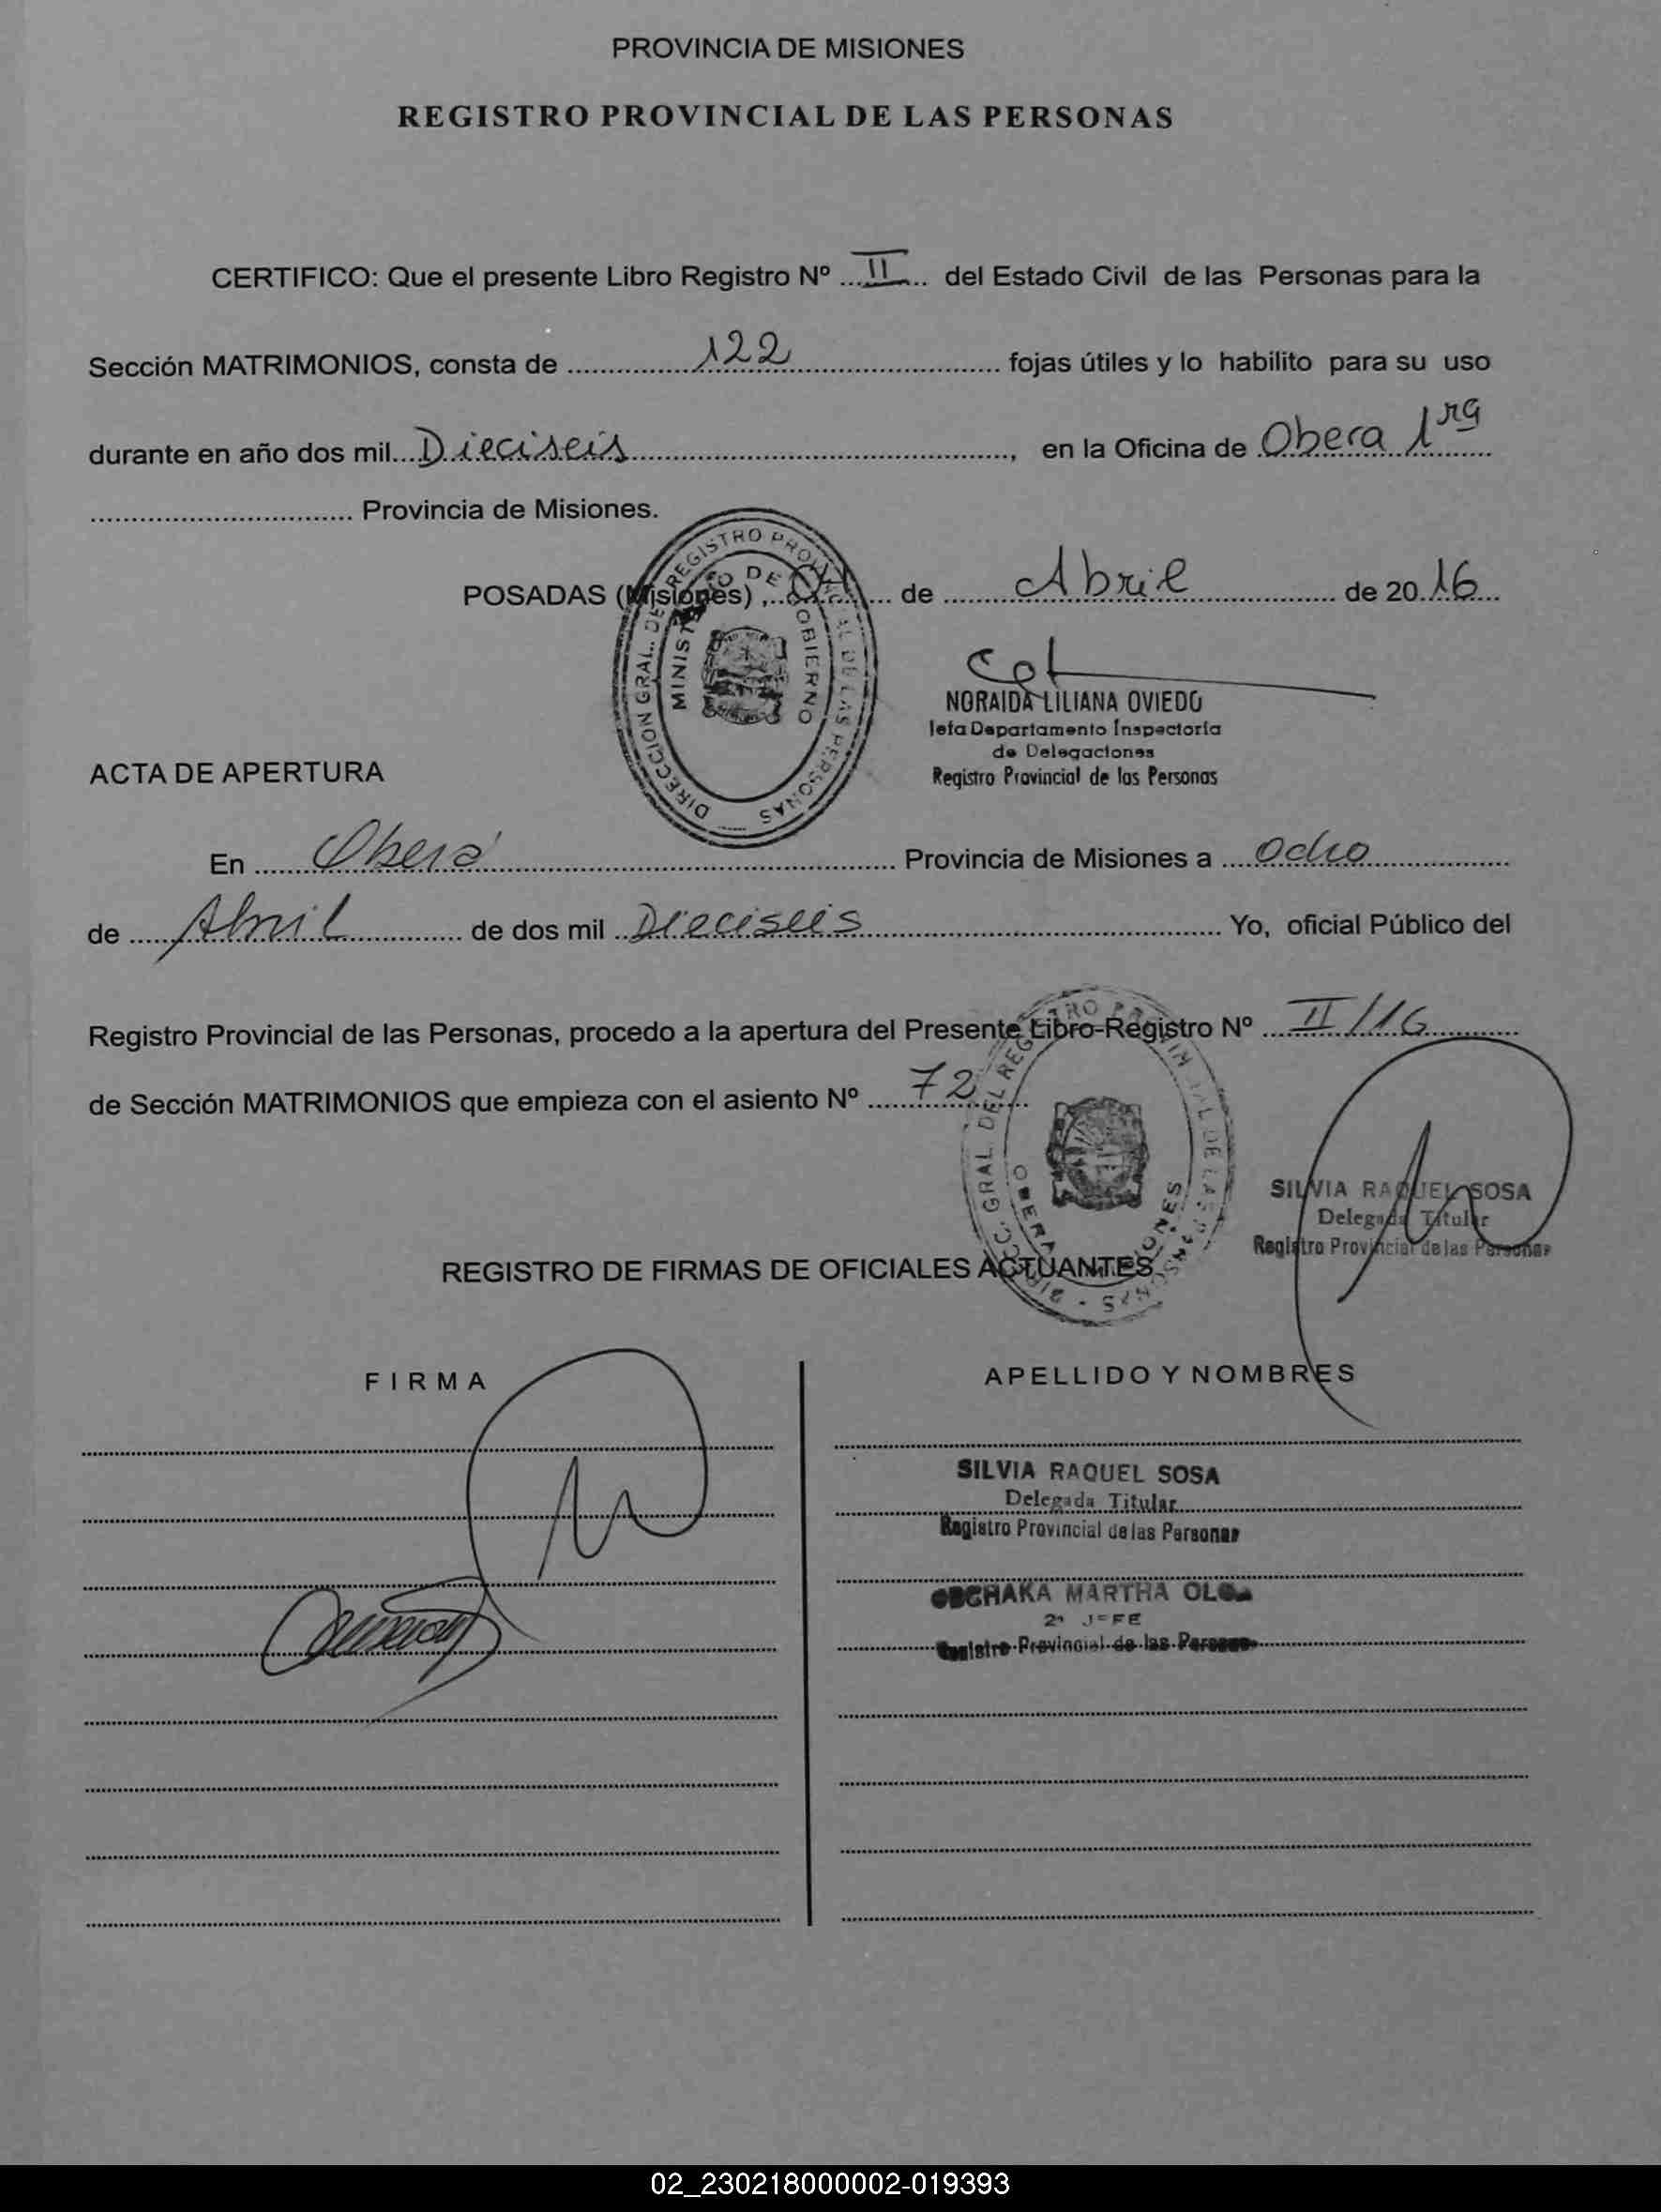 PROVINCIA DE MISIONES
REGISTRO PROVINCIAL DE LAS PERSONAS
CERTIFICO: Que el presente Libro Registro Nº ... II ... del Estado Civil de las Personas para la
Sección MATRIMONIOS, consta de ... 122 ... fojas útiles y lo habilito para su uso
durante en año dos mil... Dieciseis ..., en la Oficina de Obera 1ra
... Provincia de Misiones.
POSADAS (Misiones) , ... de ... Abril ... de 20.16...
DIRECCION GRAL. DE REGISTRO PROVINCIAL DE LAS PERSONAS
MINISTERIO DE GOBIERNO
NORAIDA LILIANA OVIEDO
Jefa Departamento Inspectoría
de Delegaciones
Registro Provincial de las Personas
ACTA DE APERTURA
En ... Oberá ... Provincia de Misiones a ... Ocho ...
de ... Abril ... de dos mil ... Dieciseis ... Yo, oficial Público del
Registro Provincial de las Personas, procedo a la apertura del Presente Libro-Registro Nº ... II/16 ...
de Sección MATRIMONIOS que empieza con el asiento Nº ... 72 ...
DIRECC. GRAL. DEL REGISTRO PROVINCIAL DE LAS PERSONAS
OBERA MISIONES
SILVIA RAQUEL SOSA
Delegada Titular
Registro Provincial de las Personas
REGISTRO DE FIRMAS DE OFICIALES ACTUANTES
FIRMA
APELLIDO Y NOMBRES
SILVIA RAQUEL SOSA
Delegada Titular
Registro Provincial de las Personas
MARTHA
2ª JEFE
Registro Provincial de las Personas
02_230218000002-019393